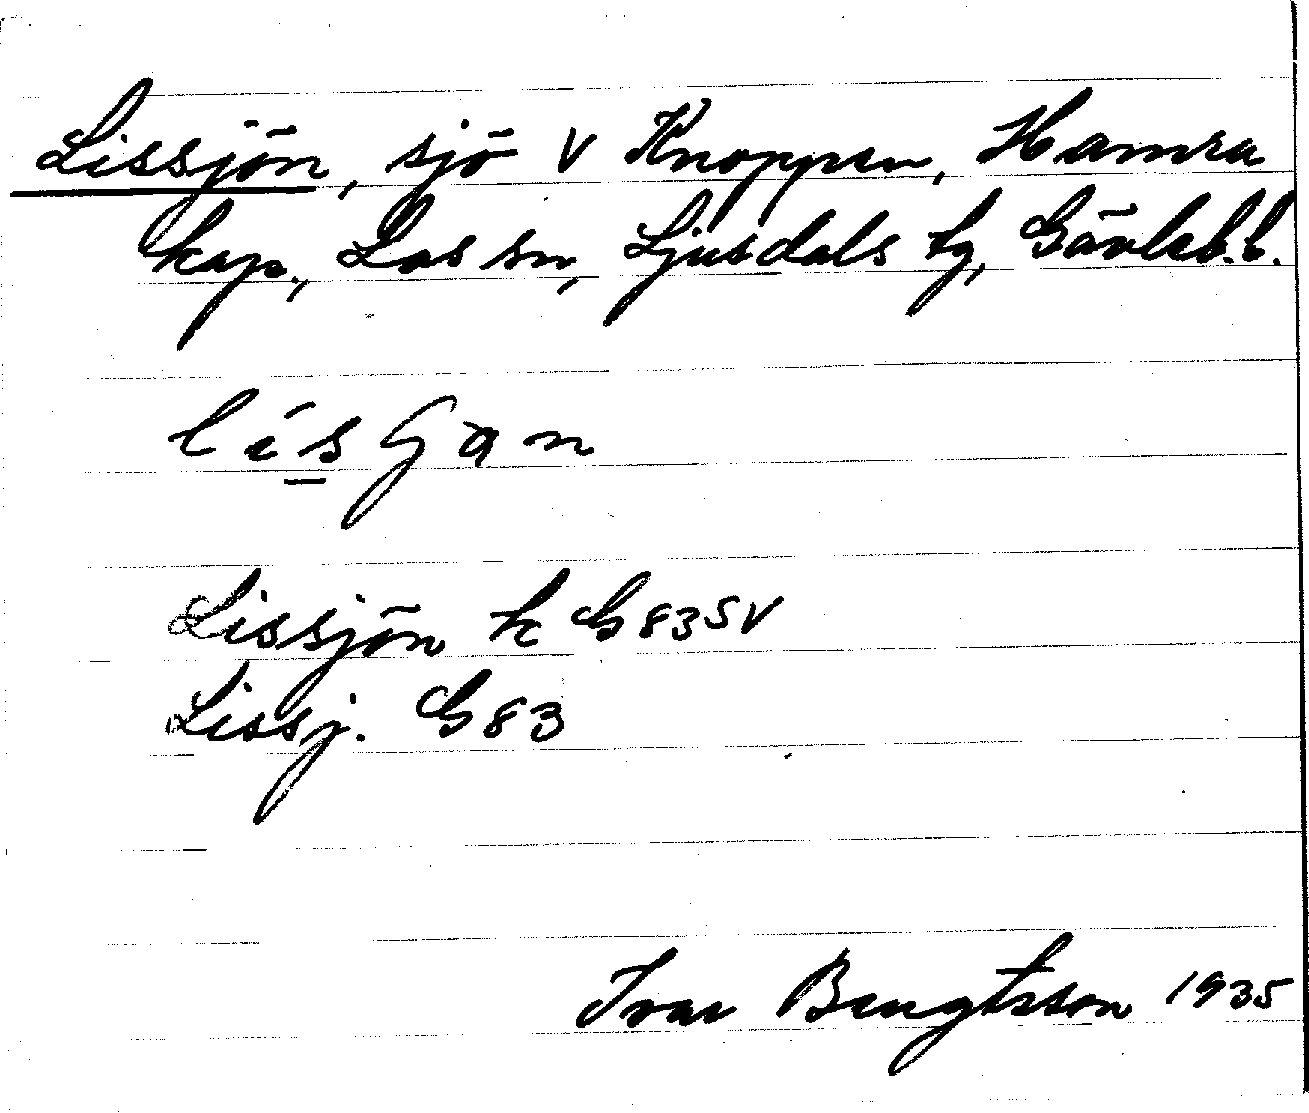 Lissjön, sjö V Knoppen, Hamra
kap., Los sn, Ljusdals tg, Gävleb. l.
Lissjön k G 83 SV
Lissj. G 83
Ivar Bengtsson 1935